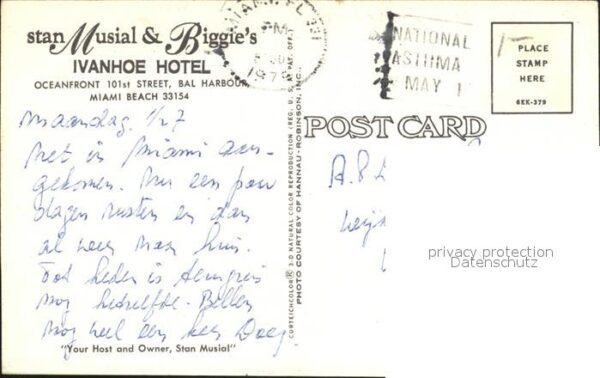 stan Musial & Biggie's
IVANHOE HOTEL
OCEANFRONT 101st STREET, BAL HARBOUR,
MIAMI BEACH 33154
Maandag
Net in Miami aan-
gekomen. Nu een paar
dagen rusten en dan
al weer naar huis.
Tot heden is
nog hetzelfde. Bellen
nog wel een keer Daag
"Your Host and Owner, Stan Musial"
MIAMI, FL 331
PM
197
NATIONAL
ASTHMA
MAY
PLACE
STAMP
HERE
6EK-379
POST CARD
CURTEICHCOLOR® 3-D NATURAL COLOR REPRODUCTION (REG. U. S. A. PAT. OFF.)
PHOTO COURTESY OF HANNAU-ROBINSON, INC.
A.P.
privacy protection
Datenschutz